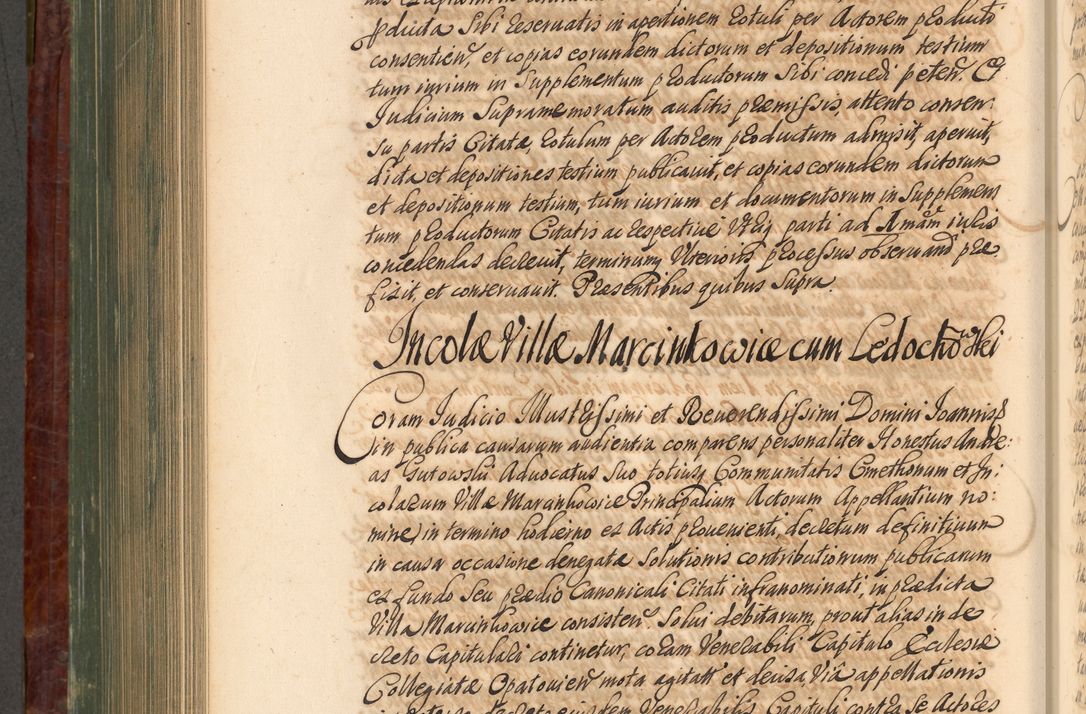 pducta Sibi reservatis in apertionem Rotuli per Actorem producti
consentien, et copias eorundem dictorum et depositionum testium
tum iurium in Supplementum productorum Sibi concedi peten. Et
Judicium Supramemoratum auditis præmissis, attento consen:
su partis Citatæ, Rotulum per Actorem productum admisit, aperuit,
dicta et depositiones testium publicavit, et copias eorundem dictorum
et depositionum testium, tum iurium et documentorum in Supplemen
tum productorum Citatis ac respectivè Utriq parti ad Amam iuris
concedendas decrevit, terminumq Ulterioris processus observand præ
fixit, et conservavit. Præsentibus quibus Supra.
Incolæ Villæ Marcinkowice cum Ledochowski
Coram Judicio Illustrissimi et Reverendissimi Domini Joannis
in publica causarum audientia comparens personaliter Honestus Andre:
as Gutowski Advocatus Suo totiusq Communitatis Cmethonum et In:
colarum Villæ Marcinkowice Principalium Actorum Appellantium no:
mine) in termino hodierno ex Actis proveniente, decretum definitivum
in causa occasione denegatæ Solutionis contributionum publicarum
ex fundo Seu prædio Canonicali Citati infranominati, in prædicta
Villa Marcinkowice consisten Solvi debitarum, prout alias in de
creto Capitulari continetur, coram Venerabili Capitulo Ecclesiæ
Collegiatæ Opatovien mota agitat et devisa, Viâ appellationis
decreto eiusdem Venerabilis Capituli contra se Actores